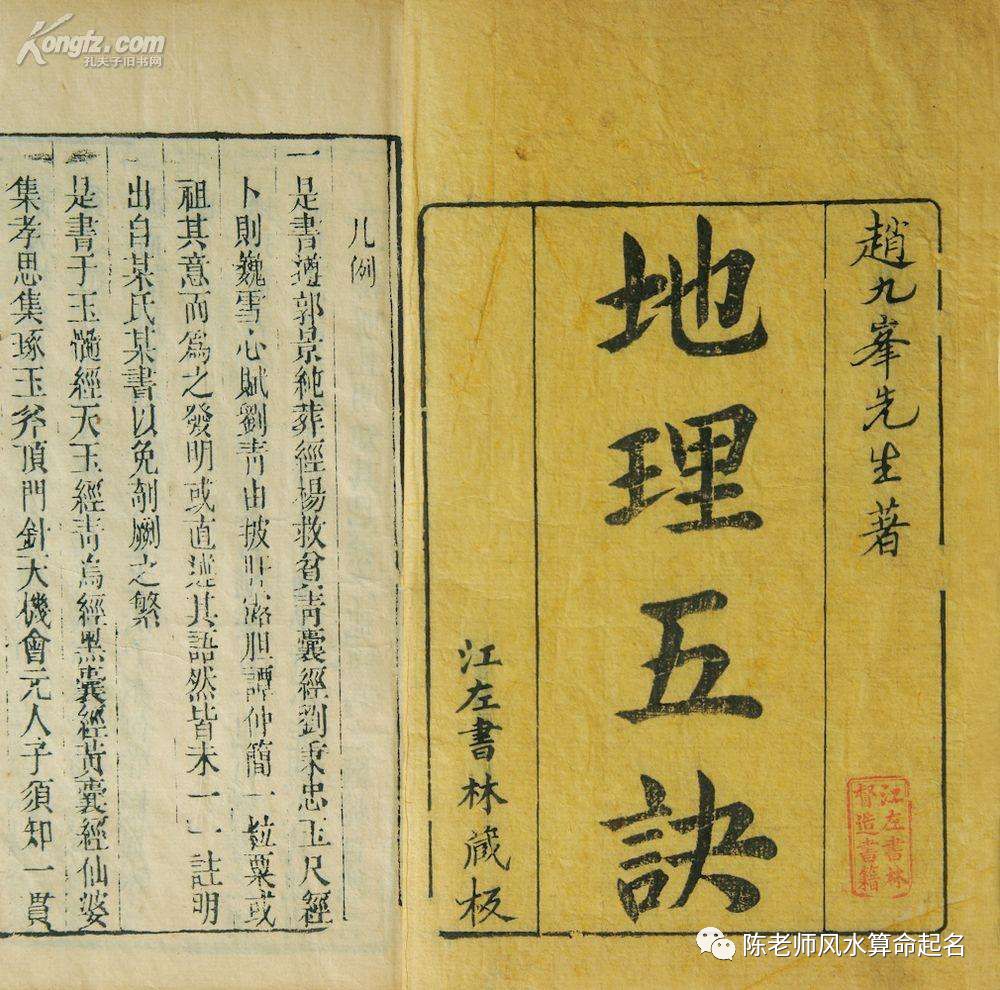 趙九峯先生著
地理五訣
江左書林藏板
江左書林
督造書籍
凡例
一是書遵郭景純葬經揚救貧青囊經劉秉忠玉尺經
卜則巍雪心賦劉青田披肝露胆譚仲簡一粒粟或
祖其意而爲之發明或直述其語然皆未一一註明
出自某氏某書以免剞劂之繁
一是書于玉髓經天玉經青烏經黑囊經黃囊經仙婆
集孝思集琢玉斧頂門針天機會元人子須知一貫
Kongfz.com
孔夫子旧书网
陈老师风水算命起名